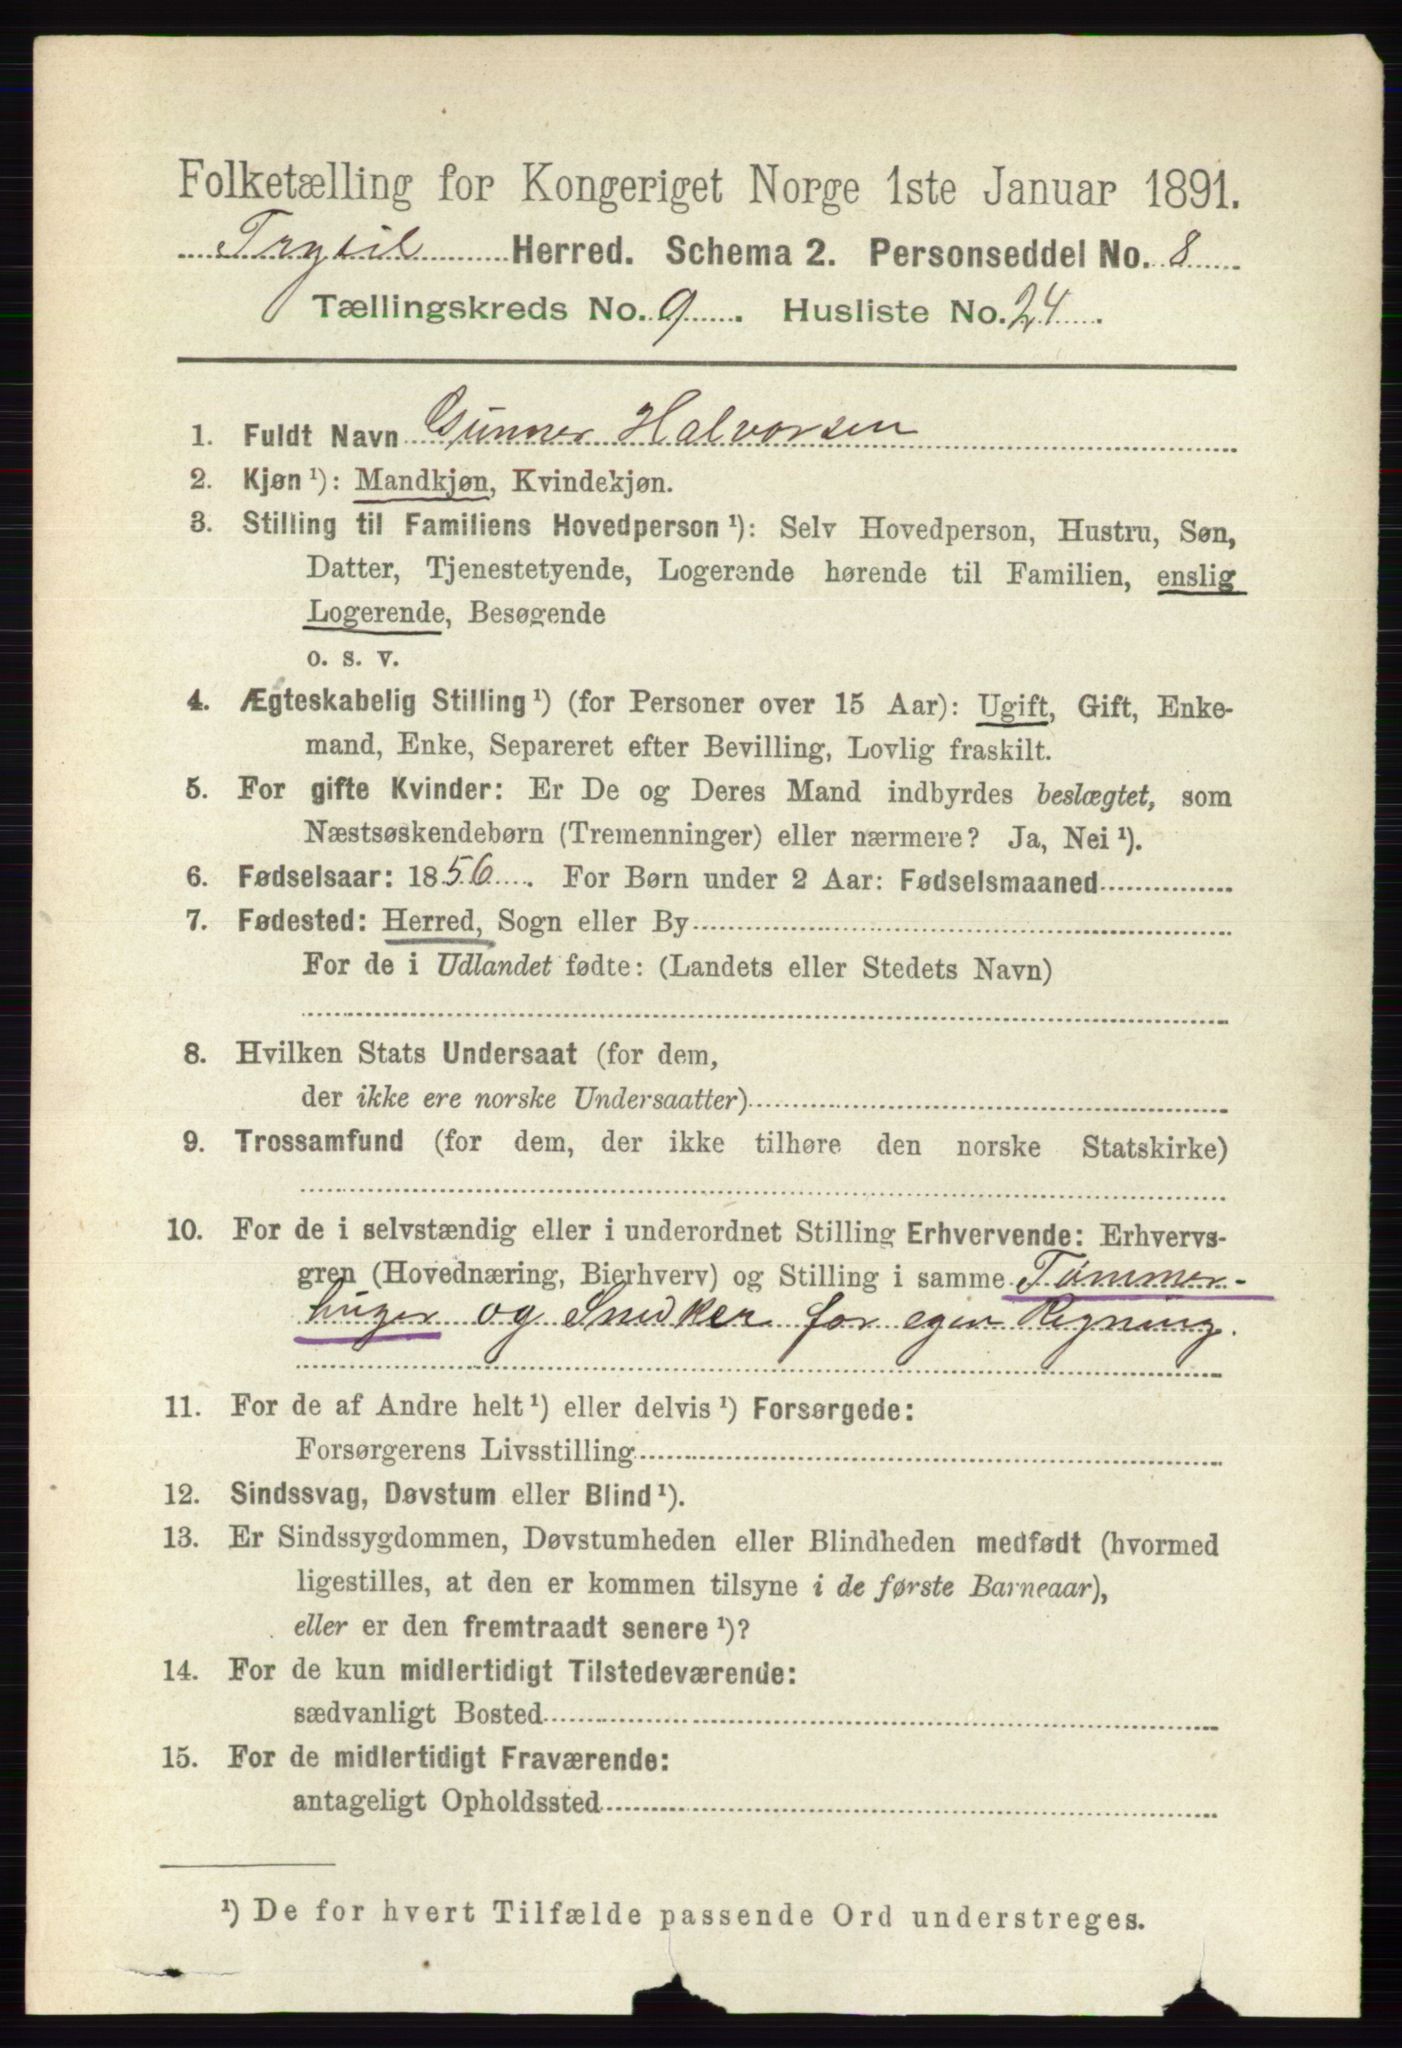 Folketælling for Kongeriget Norge 1ste Januar 1891.
Trysil Herred. Schema 2. Personseddel No. 8
Tællingskreds No. 9. Husliste No. 24.
1. Fuldt Navn Gunner Halvorsen
2. Kjøn ¹): Mandkjøn, Kvindekjøn.
3. Stilling til Familiens Hovedperson ¹): Selv Hovedperson, Hustru, Søn,
Datter, Tjenestetyende, Logerende hørende til Familien, enslig
Logerende, Besøgende
o. s. v.
4. Ægteskabelig Stilling ¹) (for Personer over 15 Aar): Ugift, Gift, Enke-
mand, Enke, Separeret efter Bevilling, Lovlig fraskilt.
5. For gifte Kvinder: Er De og Deres Mand indbyrdes beslægtet, som
Næstsøskendebørn (Tremenninger) eller nærmere? Ja, Nei ¹).
6. Fødselsaar: 1856. For Børn under 2 Aar: Fødselsmaaned
7. Fødested: Herred, Sogn eller By
For de i Udlandet fødte: (Landets eller Stedets Navn)
8. Hvilken Stats Undersaat (for dem,
der ikke ere norske Undersaatter)
9. Trossamfund (for dem, der ikke tilhøre den norske Statskirke)
10. For de i selvstændig eller i underordnet Stilling Erhvervende: Erhvervs-
gren (Hovednæring, Bierhverv) og Stilling i samme Tømmer-
huger og Snedker for egen Regning.
11. For de af Andre helt ¹) eller delvis ¹) Forsørgede:
Forsørgerens Livsstilling
12. Sindssvag, Døvstum eller Blind ¹).
13. Er Sindssygdommen, Døvstumheden eller Blindheden medfødt (hvormed
ligestilles, at den er kommen tilsyne i de første Barneaar),
eller er den fremtraadt senere ¹)?
14. For de kun midlertidigt Tilstedeværende:
sædvanligt Bosted
15. For de midlertidigt Fraværende:
antageligt Opholdssted
¹) De for hvert Tilfælde passende Ord understreges.